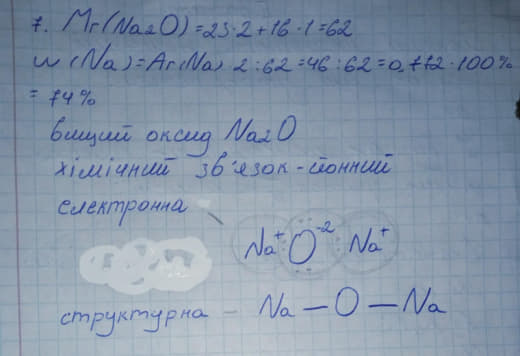 7. Mr(Na2O)=23·2+16·1=62
w(Na)=Ar(Na)·2:62=46:62=0,742·100%
=74%
вищий оксид Na2O
хімічний зв'язок-йонний
електронна
Na⁺ O⁻² Na⁺
структурна - Na—O—Na